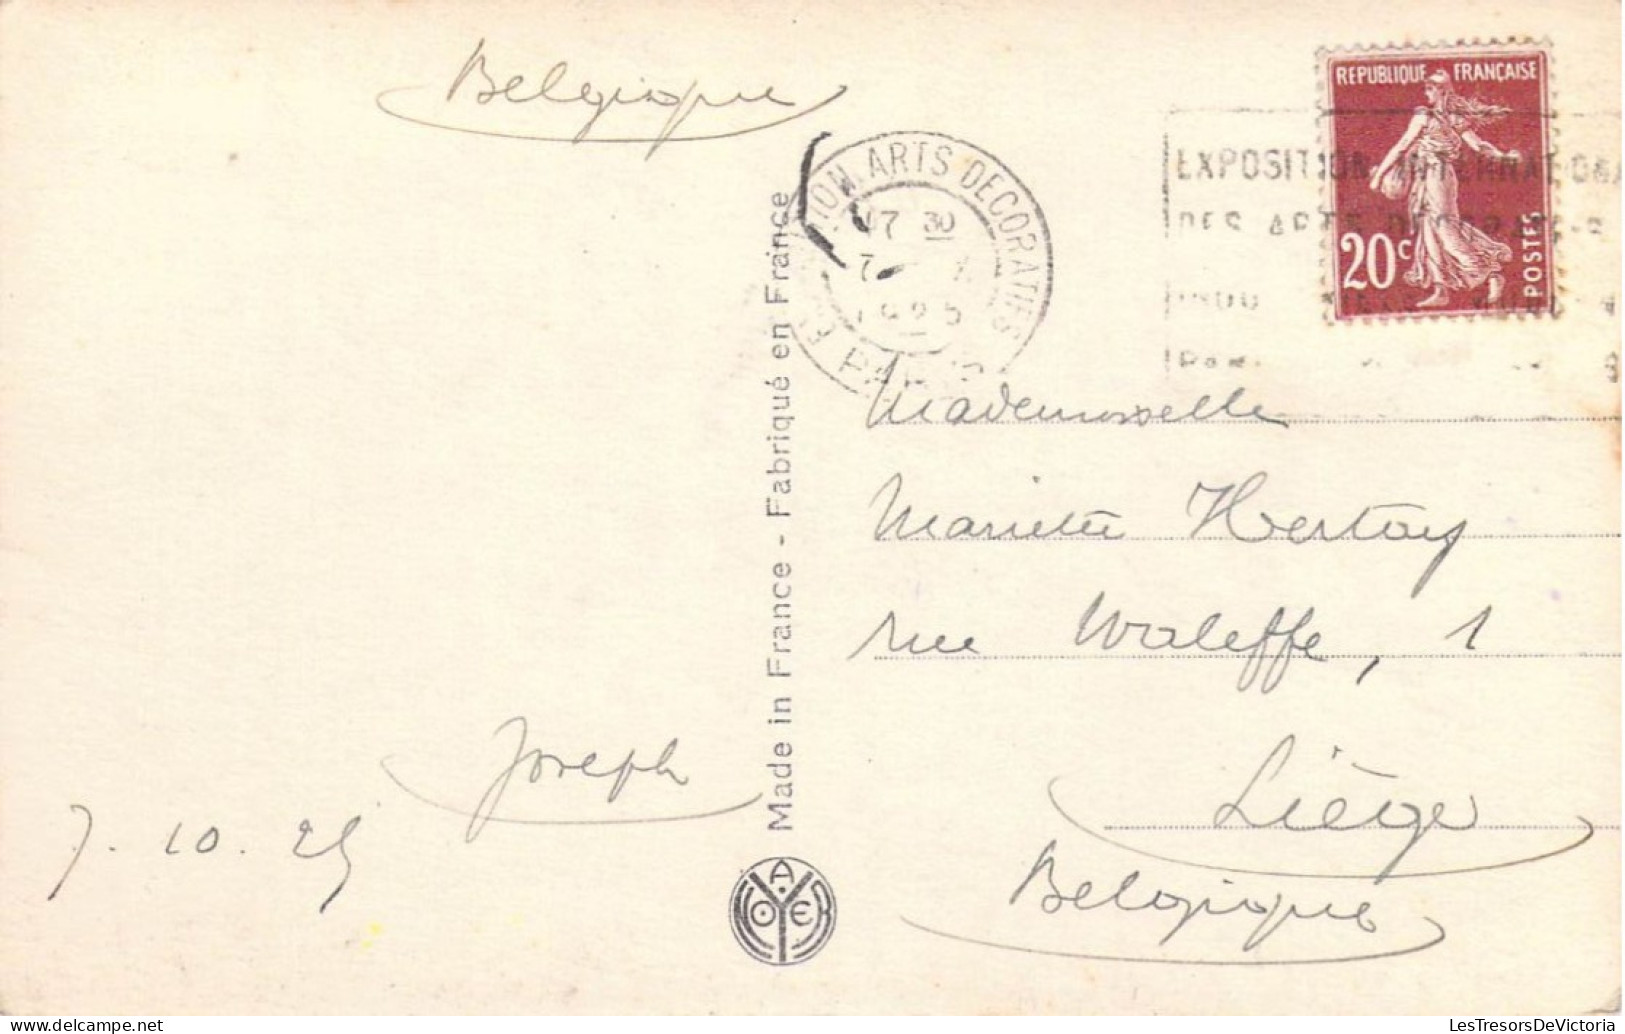 Belgique
REPUBLIQUE FRANÇAISE
20c
POSTES
ARTS DECORATIFS
PARIS
17 30
7
1925
EXPOSITION INTERNATIONA
DES ARTS DÉCORATIFS
Made in France - Fabriqué en France
Mademoiselle
Mariette Hertay
rue Waleffe, 1
Liège
Belgique
Joseph
7. 10. 25
A
NOYER
LesTresorsDeVictoria